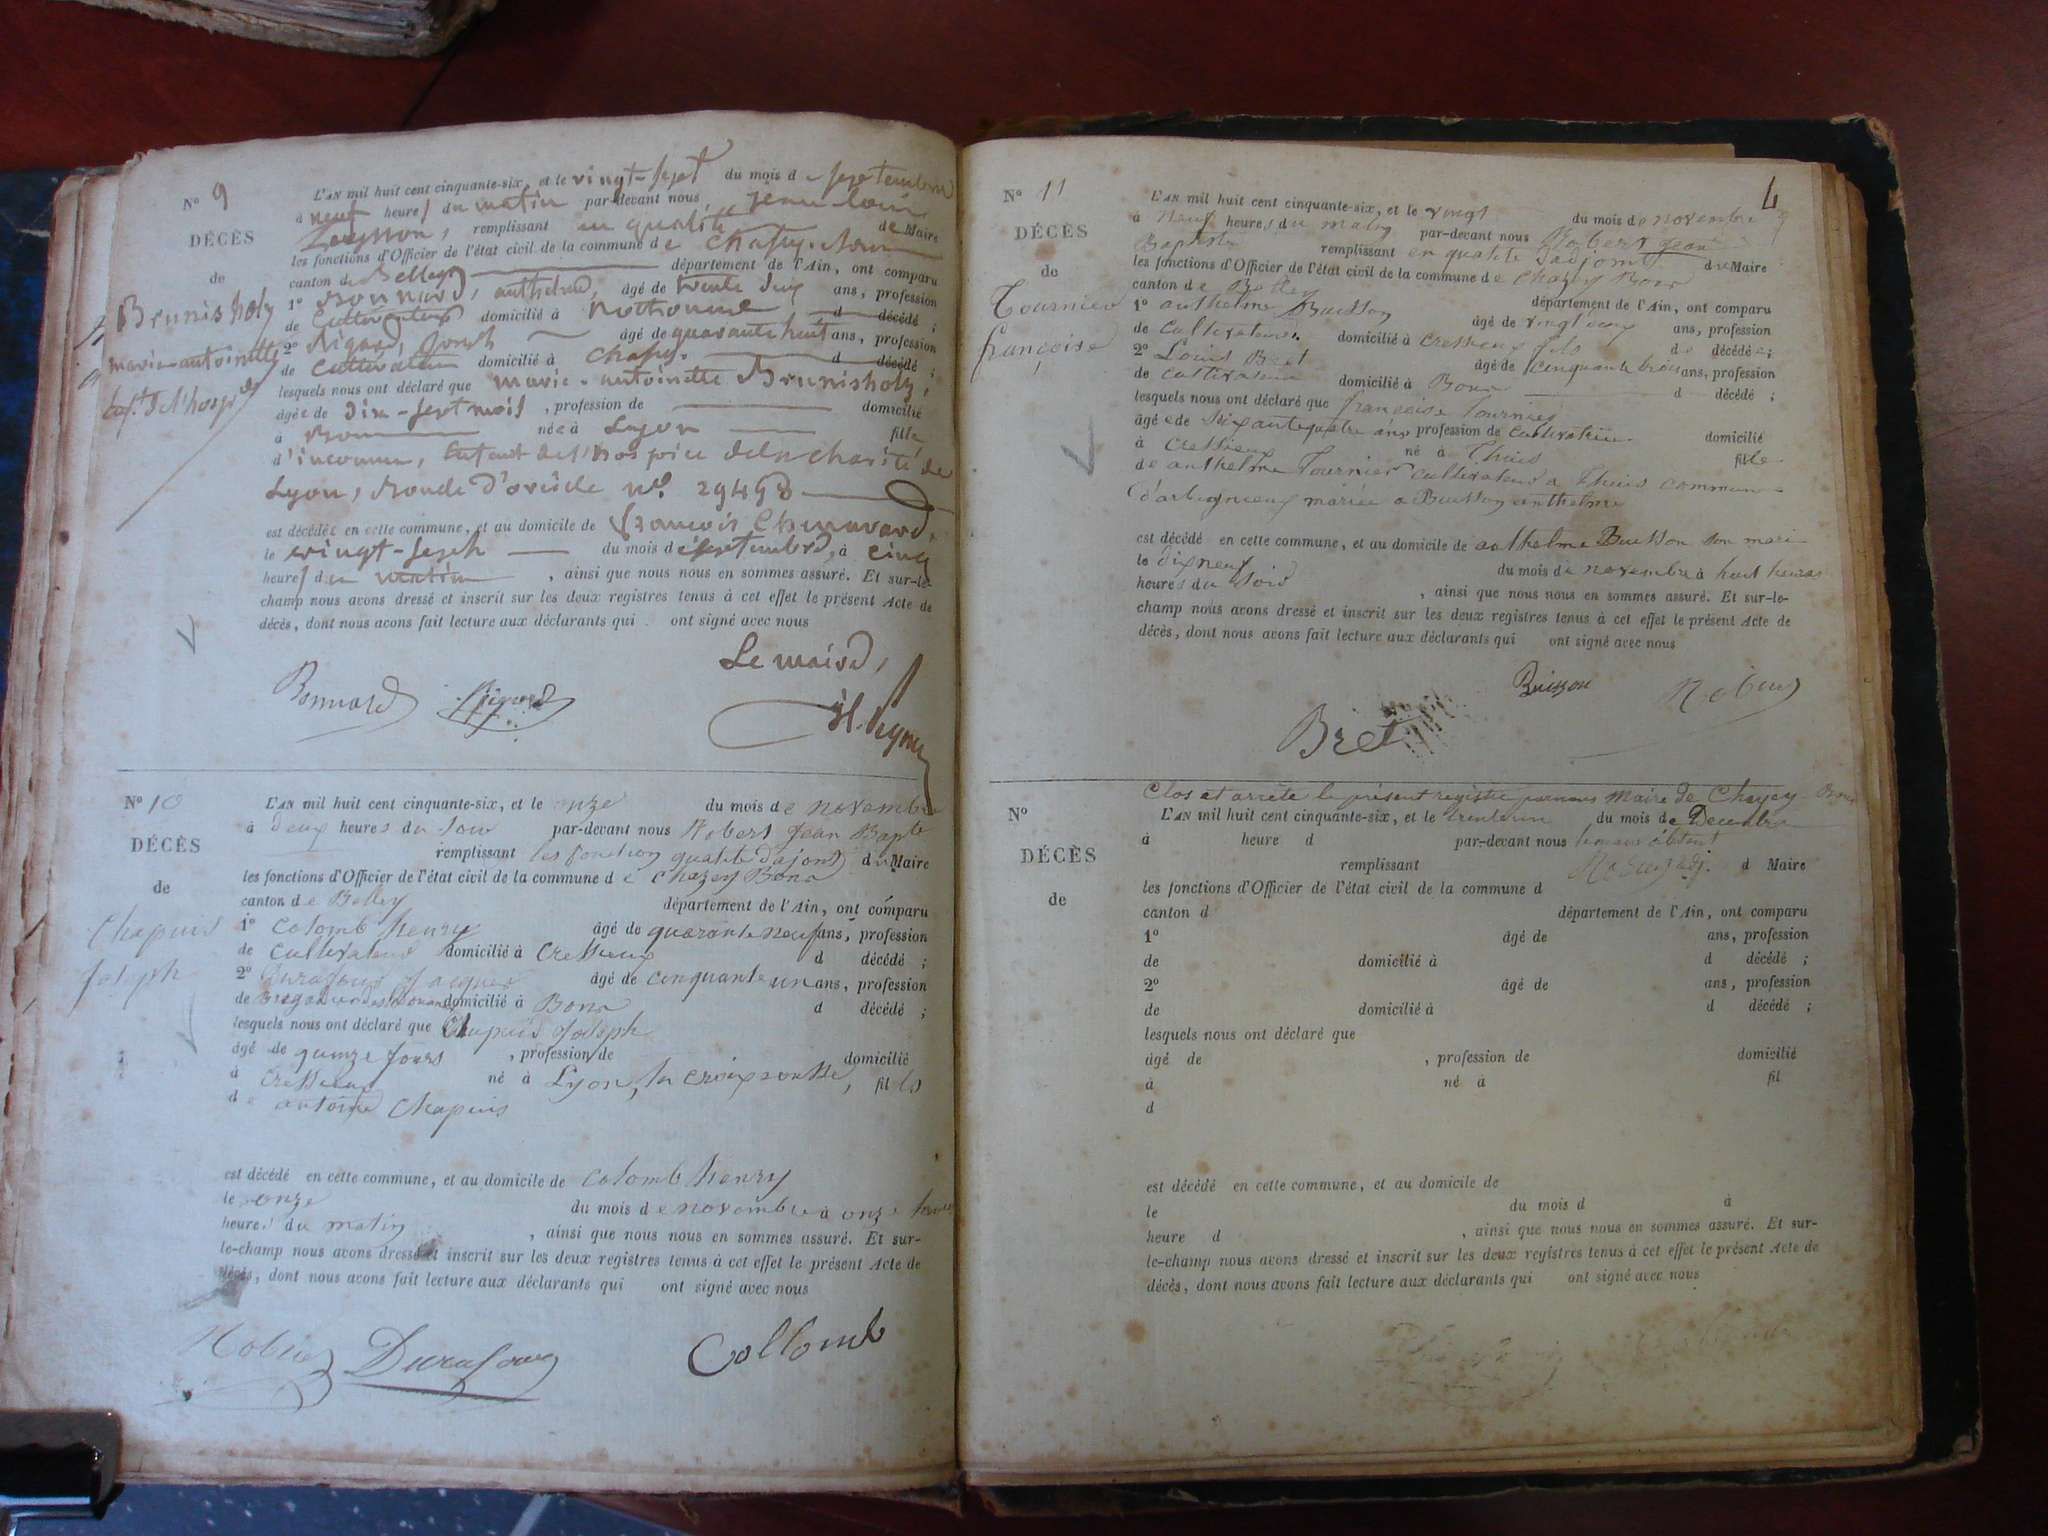 N° 9
DÉCÈS
de
Brunisholz
marie-antoinette
L'AN mil huit cent cinquante-six, et le vingt-sept du mois de septembre
à neuf heures du matin par-devant nous, jean louis
remplissant en qualité de Maire
les fonctions d'Officier de l'état civil de la commune de Chazey-Bons
canton de Belley département de l'Ain, ont comparu
1° Bonnard, anthelme, âgé de trente deux ans, profession
de Cultivateur domicilié à Rothonne d décédé ;
2° Rigard, Joseph âgé de quarante huit ans, profession
de Cultivateur domicilié à Chazey. d décédé ;
lesquels nous ont déclaré que marie-antoinette Brunisholz,
âgée de dix-sept mois, profession de domicilié
à Bons née à Lyon fille
d'inconnu, Enfant de l'hospice de la charité de
Lyon, Boucle d'oreille N° 29498
est décédée en cette commune, et au domicile de François Chenavard,
le vingt-sept du mois de septembre, à cinq
heures du matin, ainsi que nous nous en sommes assuré. Et sur-le-
champ nous avons dressé et inscrit sur les deux registres tenus à cet effet le présent Acte de
décès, dont nous avons fait lecture aux déclarants qui ont signé avec nous
Le maire,
Bonnard Rigard
N° 10
DÉCÈS
de
Chapuis
Joseph
L'AN mil huit cent cinquante-six, et le onze du mois de novembre
à deux heures du soir par-devant nous Robert Jean Bapte
remplissant les fonction qualité d'ajoint du Maire
les fonctions d'Officier de l'état civil de la commune de Chazey Bons
canton de Belley département de l'Ain, ont comparu
1° Colomb henry âgé de quarante neuf ans, profession
de cultivateur domicilié à Cressieux d décédé ;
2° Durafour Jacques âgé de cinquante un ans, profession
de domicilié à Bons d décédé ;
lesquels nous ont déclaré que Chapuis Joseph
âgé de quinze jours, profession de domicilié
à Cressieux né à Lyon, la croix rousse, fil ls
de antoine Chapuis
est décédé en cette commune, et au domicile de colomb henry
le onze du mois de novembre à onze heures
heures du matin, ainsi que nous nous en sommes assuré. Et sur-
le-champ nous avons dressé et inscrit sur les deux registres tenus à cet effet le présent Acte de
décès, dont nous avons fait lecture aux déclarants qui ont signé avec nous
Durafour Collomb
4
N° 11
DÉCÈS
de
Tournier
françoise
L'AN mil huit cent cinquante-six, et le vingt du mois de novembre
à neuf heures du matin par-devant nous Robert Jean
Baptiste remplissant en qualité d'adjoint du Maire
les fonctions d'Officier de l'état civil de la commune de Chazey Bons
canton de Belley département de l'Ain, ont comparu
1° anthelme Buisson âgé de vingt deux ans, profession
de cultivateur domicilié à Cressieux fils de décédée ;
2° Louis Bret âgé de cinquante trois ans, profession
de cultivateur domicilié à Bons d décédé ;
lesquels nous ont déclaré que françoise Tournier
âgée de soixante quatre ans profession de cultivatrice domicilié
à Cressieux né à Thuis fille
de anthelme Tournier cultivateur a Thuis commune
d'arbignieux mariée a Buisson anthelme
est décédé en cette commune, et au domicile de anthelme Buisson son mari
le dix neuf du mois de novembre à huit heures
heures du soir, ainsi que nous nous en sommes assuré. Et sur-le-
champ nous avons dressé et inscrit sur les deux registres tenus à cet effet le présent Acte de
décès, dont nous avons fait lecture aux déclarants qui ont signé avec nous
Buisson
Bret
Clos et arrêté le présent registre par nous Maire de Chazey Bons
N°
DÉCÈS
de
L'AN mil huit cent cinquante-six, et le trente un du mois de Decembre
à heure d par-devant nous
remplissant d Maire
les fonctions d'Officier de l'état civil de la commune d
canton d département de l'Ain, ont comparu
1° âgé de ans, profession
de domicilié à d décédé ;
2° âgé de ans, profession
de domicilié à d décédé ;
lesquels nous ont déclaré que
âgé de , profession de domicilié
à né à fil
d
est décédé en cette commune, et au domicile de
le du mois d à
heure d , ainsi que nous nous en sommes assuré. Et sur-
le-champ nous avons dressé et inscrit sur les deux registres tenus à cet effet le présent Acte de
décès, dont nous avons fait lecture aux déclarants qui ont signé avec nous